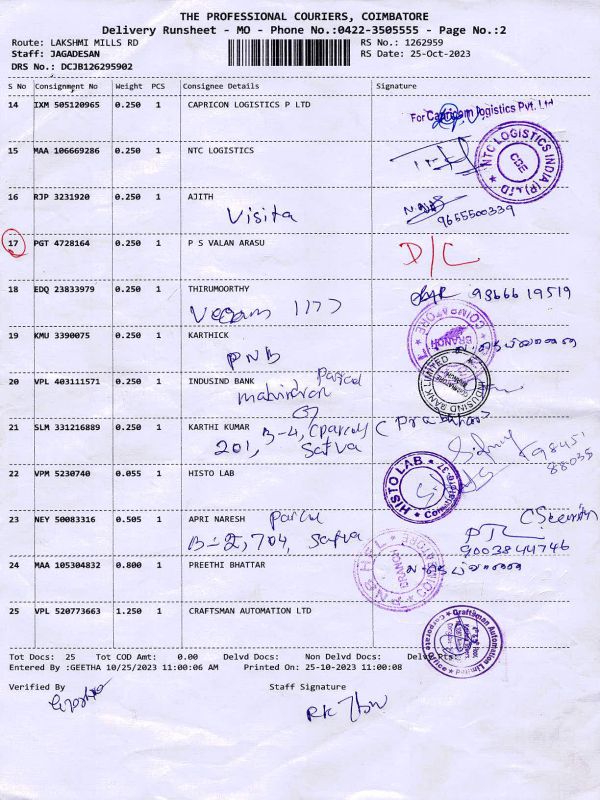 THE PROFESSIONAL COURIERS, COIMBATORE
Delivery Runsheet - MO - Phone No.:0422-3505555 - Page No.:2
Route: LAKSHMI MILLS RD RS No.: 1262959
Staff: JAGADESAN RS Date: 25-Oct-2023
DRS No.: DCJB126295902
S No Consignment No Weight PCS Consignee Details Signature
14 IXM 505120965 0.250 1 CAPRICON LOGISTICS P LTD
For Capricorn logistics Pvt. Ltd
15 MAA 106669286 0.250 1 NTC LOGISTICS
NTC LOGISTICS INDIA (P) LTD CBE
16 RJP 3231920 0.250 1 AJITH
Visita 9655500339
17 PGT 4728164 0.250 1 P S VALAN ARASU D/C
18 EDQ 23833979 0.250 1 THIRUMOORTHY 9866619519
19 KMU 3390075 0.250 1 KARTHICK
PNB
20 VPL 403111571 0.250 1 INDUSIND BANK
INDUSIND BANK LIMITED
21 SLM 331216889 0.250 1 KARTHI KUMAR
201, B-4, Satva
22 VPM 5230740 0.055 1 HISTO LAB
HISTO LAB
23 NEY 50083316 0.505 1 APRI NARESH
B-2, 704, Satva 9003844746
24 MAA 105304832 0.800 1 PREETHI BHATTAR
BRANCH
25 VPL 520773663 1.250 1 CRAFTSMAN AUTOMATION LTD
Craftsman Automation Limited Corporate Office
Tot Docs: 25 Tot COD Amt: 0.00 Delvd Docs: Non Delvd Docs: Delvd Pts:
Entered By :GEETHA 10/25/2023 11:00:06 AM Printed On: 25-10-2023 11:00:08
Verified By Staff Signature